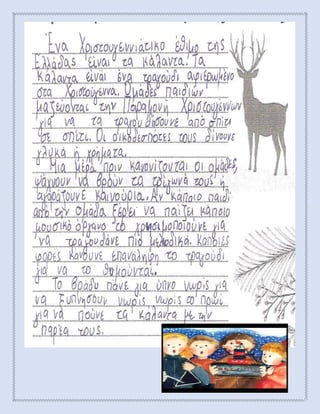 Ένα Χριστουγεννιάτικο έθιμο της
Ελλάδας είναι τα κάλαντα. Τα
κάλαντα είναι ένα τραγούδι αφιερωμένο
στα Χριστούγεννα. Ομάδες παιδιών
μαζεύονται την Παραμονή Χριστουγέννων
για να τα τραγουδήσουνε από σπίτι
σε σπίτι. Οι οικοδεσπότες τους δίνουνε
γλυκά ή χρήματα.
Μια μέρα πριν κανονίζονται οι ομάδες,
ψάχνουν να βρούν τα τρίγωνά τους ή
αγοράζουνε καινούρια. Αν κάποιο παιδί
από την ομάδα ξέρει να παίζει κάποιο
μουσικό όργανο το χρησιμοποιούνε για
να τραγουδάνε πιο μελωδικά. Κάποιες
φορές κάνουνε επανάληψη το τραγούδι
για να το θυμούνται.
Το βράδυ πάνε για ύπνο νωρίς για
να ξυπνήσουν νωρίς νωρίς το πρωί
για να πούνε τα κάλαντα με την
παρέα τους.